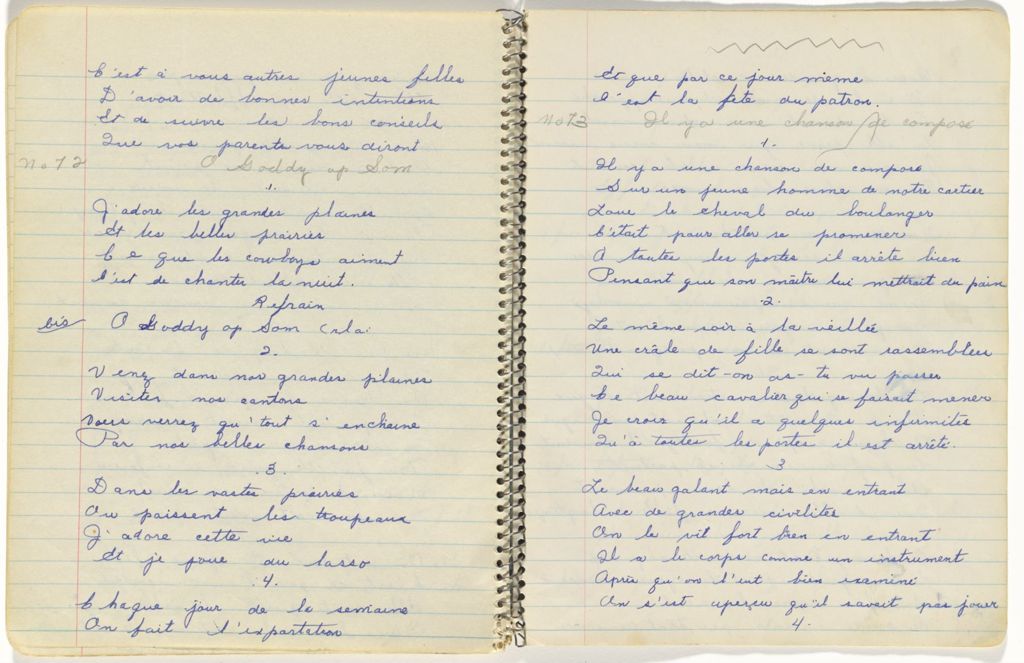 C'est à vous autres jeunes filles
D'avoir de bonnes intentions
Et de suivre les bons conseils
Que vos parents vous diront
No 12 O Goddy op Som
1.
J'adore les grandes plaines
Et les belles prairies
Ce que les cowboys aiment
C'est de chanter la nuit.
Refrain
bis O Goddy op Som (rla:
2.
Venez dans nos grandes plaines
Visiter nos cantons
Vous verrez qu'tout s'enchaine
Par nos belles chansons
.3.
Dans les vastes prairies
Ou paissent les troupeaux
J'adore cette vie
Et je joue du lasso
.4.
Chaque jour de la semaine
On fait l'exportation
Et que par ce jour mieme
C'est la fete du patron.
No 13 Il y a une chanson de compose
1.
Il y a une chanson de compose
Sur un jeune homme de notre cartier
Loue le cheval du boulanger
C'était pour aller se promener
A toutes les portes il arrête bien
Pensant que son maître lui mettrait du pain
.2.
Le même soir à la veillée
Une crâle de fille se sont rassemblées
Qui se dit-on as-tu vu passer
Ce beau cavalier qui se faisait mener
Je crois qu'il a quelques infirmites
Qu'à toutes les portes il est arrêté.
3
Le beau galant mais en entrant
Avec de grandes civilites
On le vit fort bien en entrant
Il a le corps comme un instrument
Après qu'on l'eut bien examiné
On s'est aperçu qu'il savait pas jouer
4.